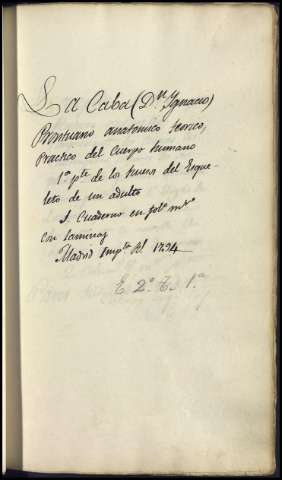 La Caba (Dn. Ygnacio)
Prontuario anatomico teorico,
practico del Cuerpo humano
1a. pte. de los huesos del Esque-
leto de un adulto
1 Cuaderno en fol. m.
con laminas
Madrid Impta. Rl. 1794
E 2a. T 1a.